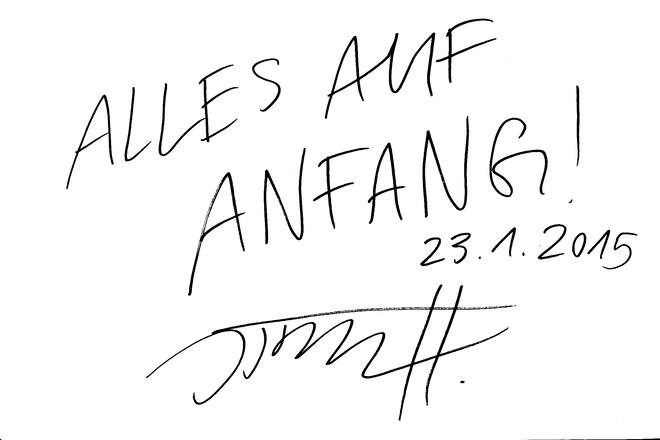 ALLES AUF
ANFANG!
23.1.2015